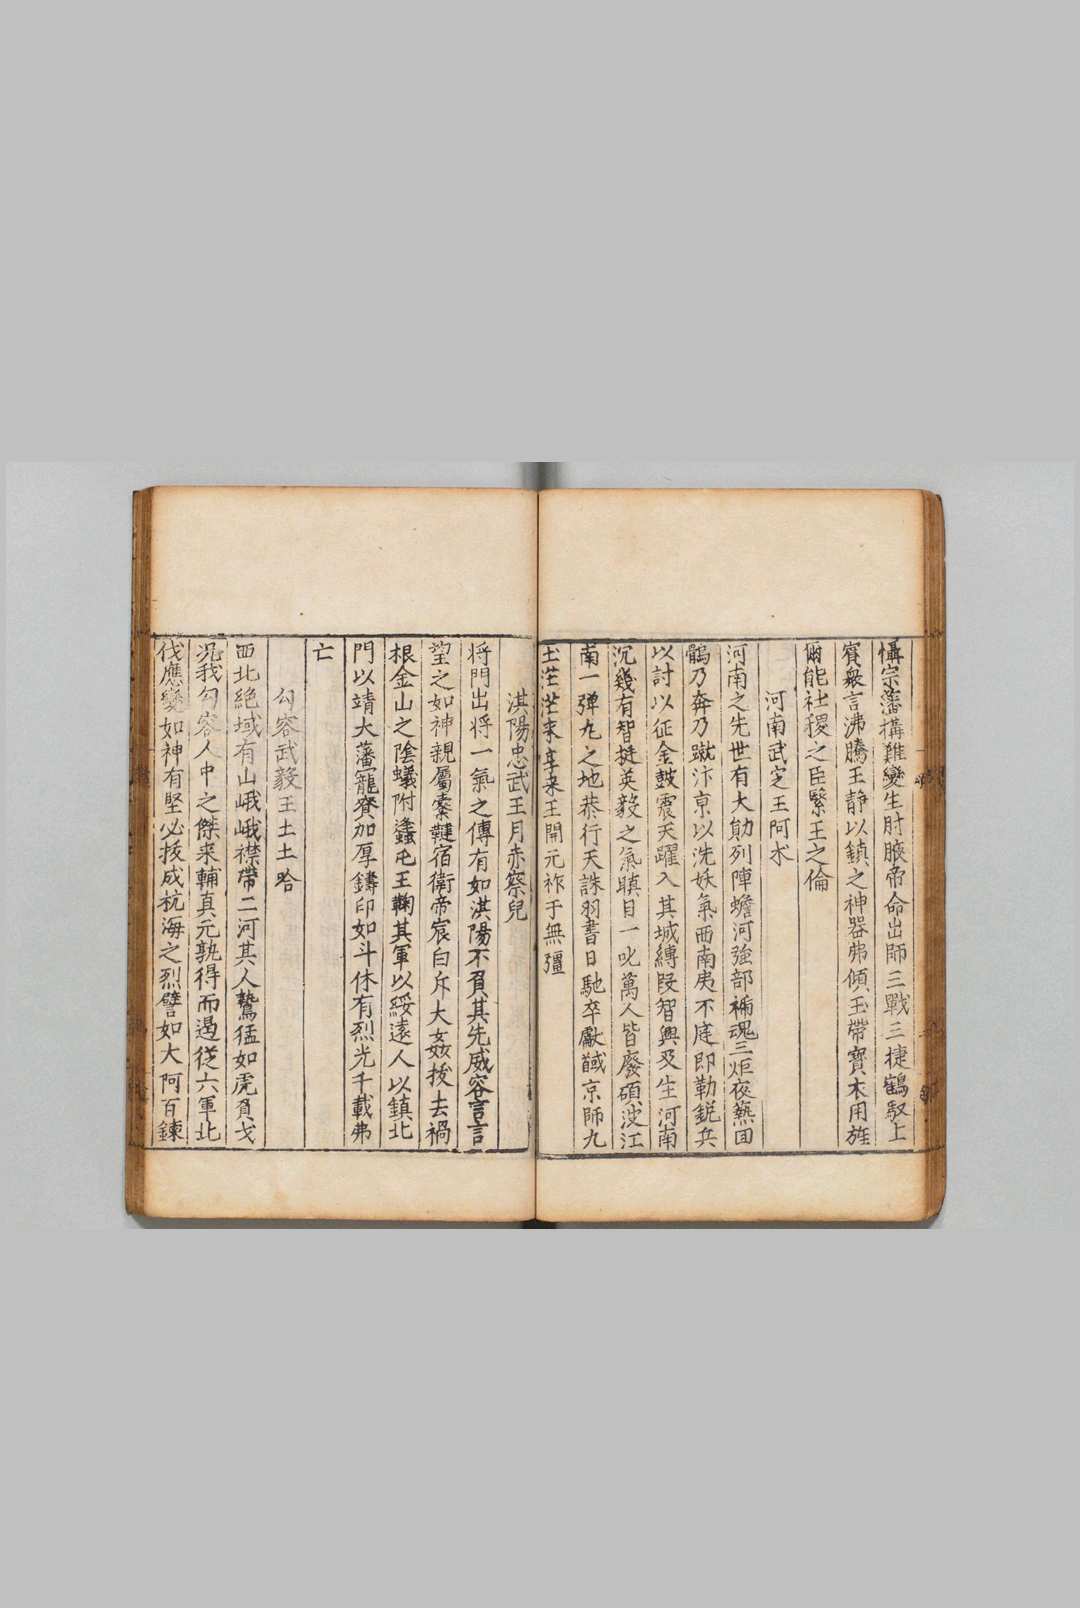 懾宗藩構難變生肘腋帝命出師三戰三捷鶴馭上
賓衆言沸騰王静以鎮之神器弗傾玉帶寶木用旌
爾能社稷之臣繄王之倫
河南武定王阿术
河南之先世有大勛列陣蟾河強部褫魂三炬夜爇回
鶻乃奔乃蹴汴京以洗妖氣西南夷不庭即勒銳兵
以討以征金鼓震天躍入其城縛段智興及生河南
沉幾有智挺英毅之氣瞋目一叱萬人皆廢碩波江
南一弹丸之地恭行天誅羽書日馳卒獻馘京師九
土茫茫来享来王開元祚于無彊
淇陽忠武王月赤察兒
将門出将一氣之傳有如淇陽不負其先威容言言
望之如神親屬櫜鞬宿衛帝宸白斥大姦拔去禍
根金山之陰蟻附蠭屯王鞠其軍以綏遠人以鎮北
門以靖大藩寵賚加厚鑄印如斗休有烈光千載弗
亡
勾容武毅王土土哈
西北絶域有山峨峨襟帶二河其人鷙猛如虎負戈
况我勾容人中之傑来輔真元孰得而遏従六軍北
伐應變如神有堅必拔成杭海之烈譬如大阿百鍊